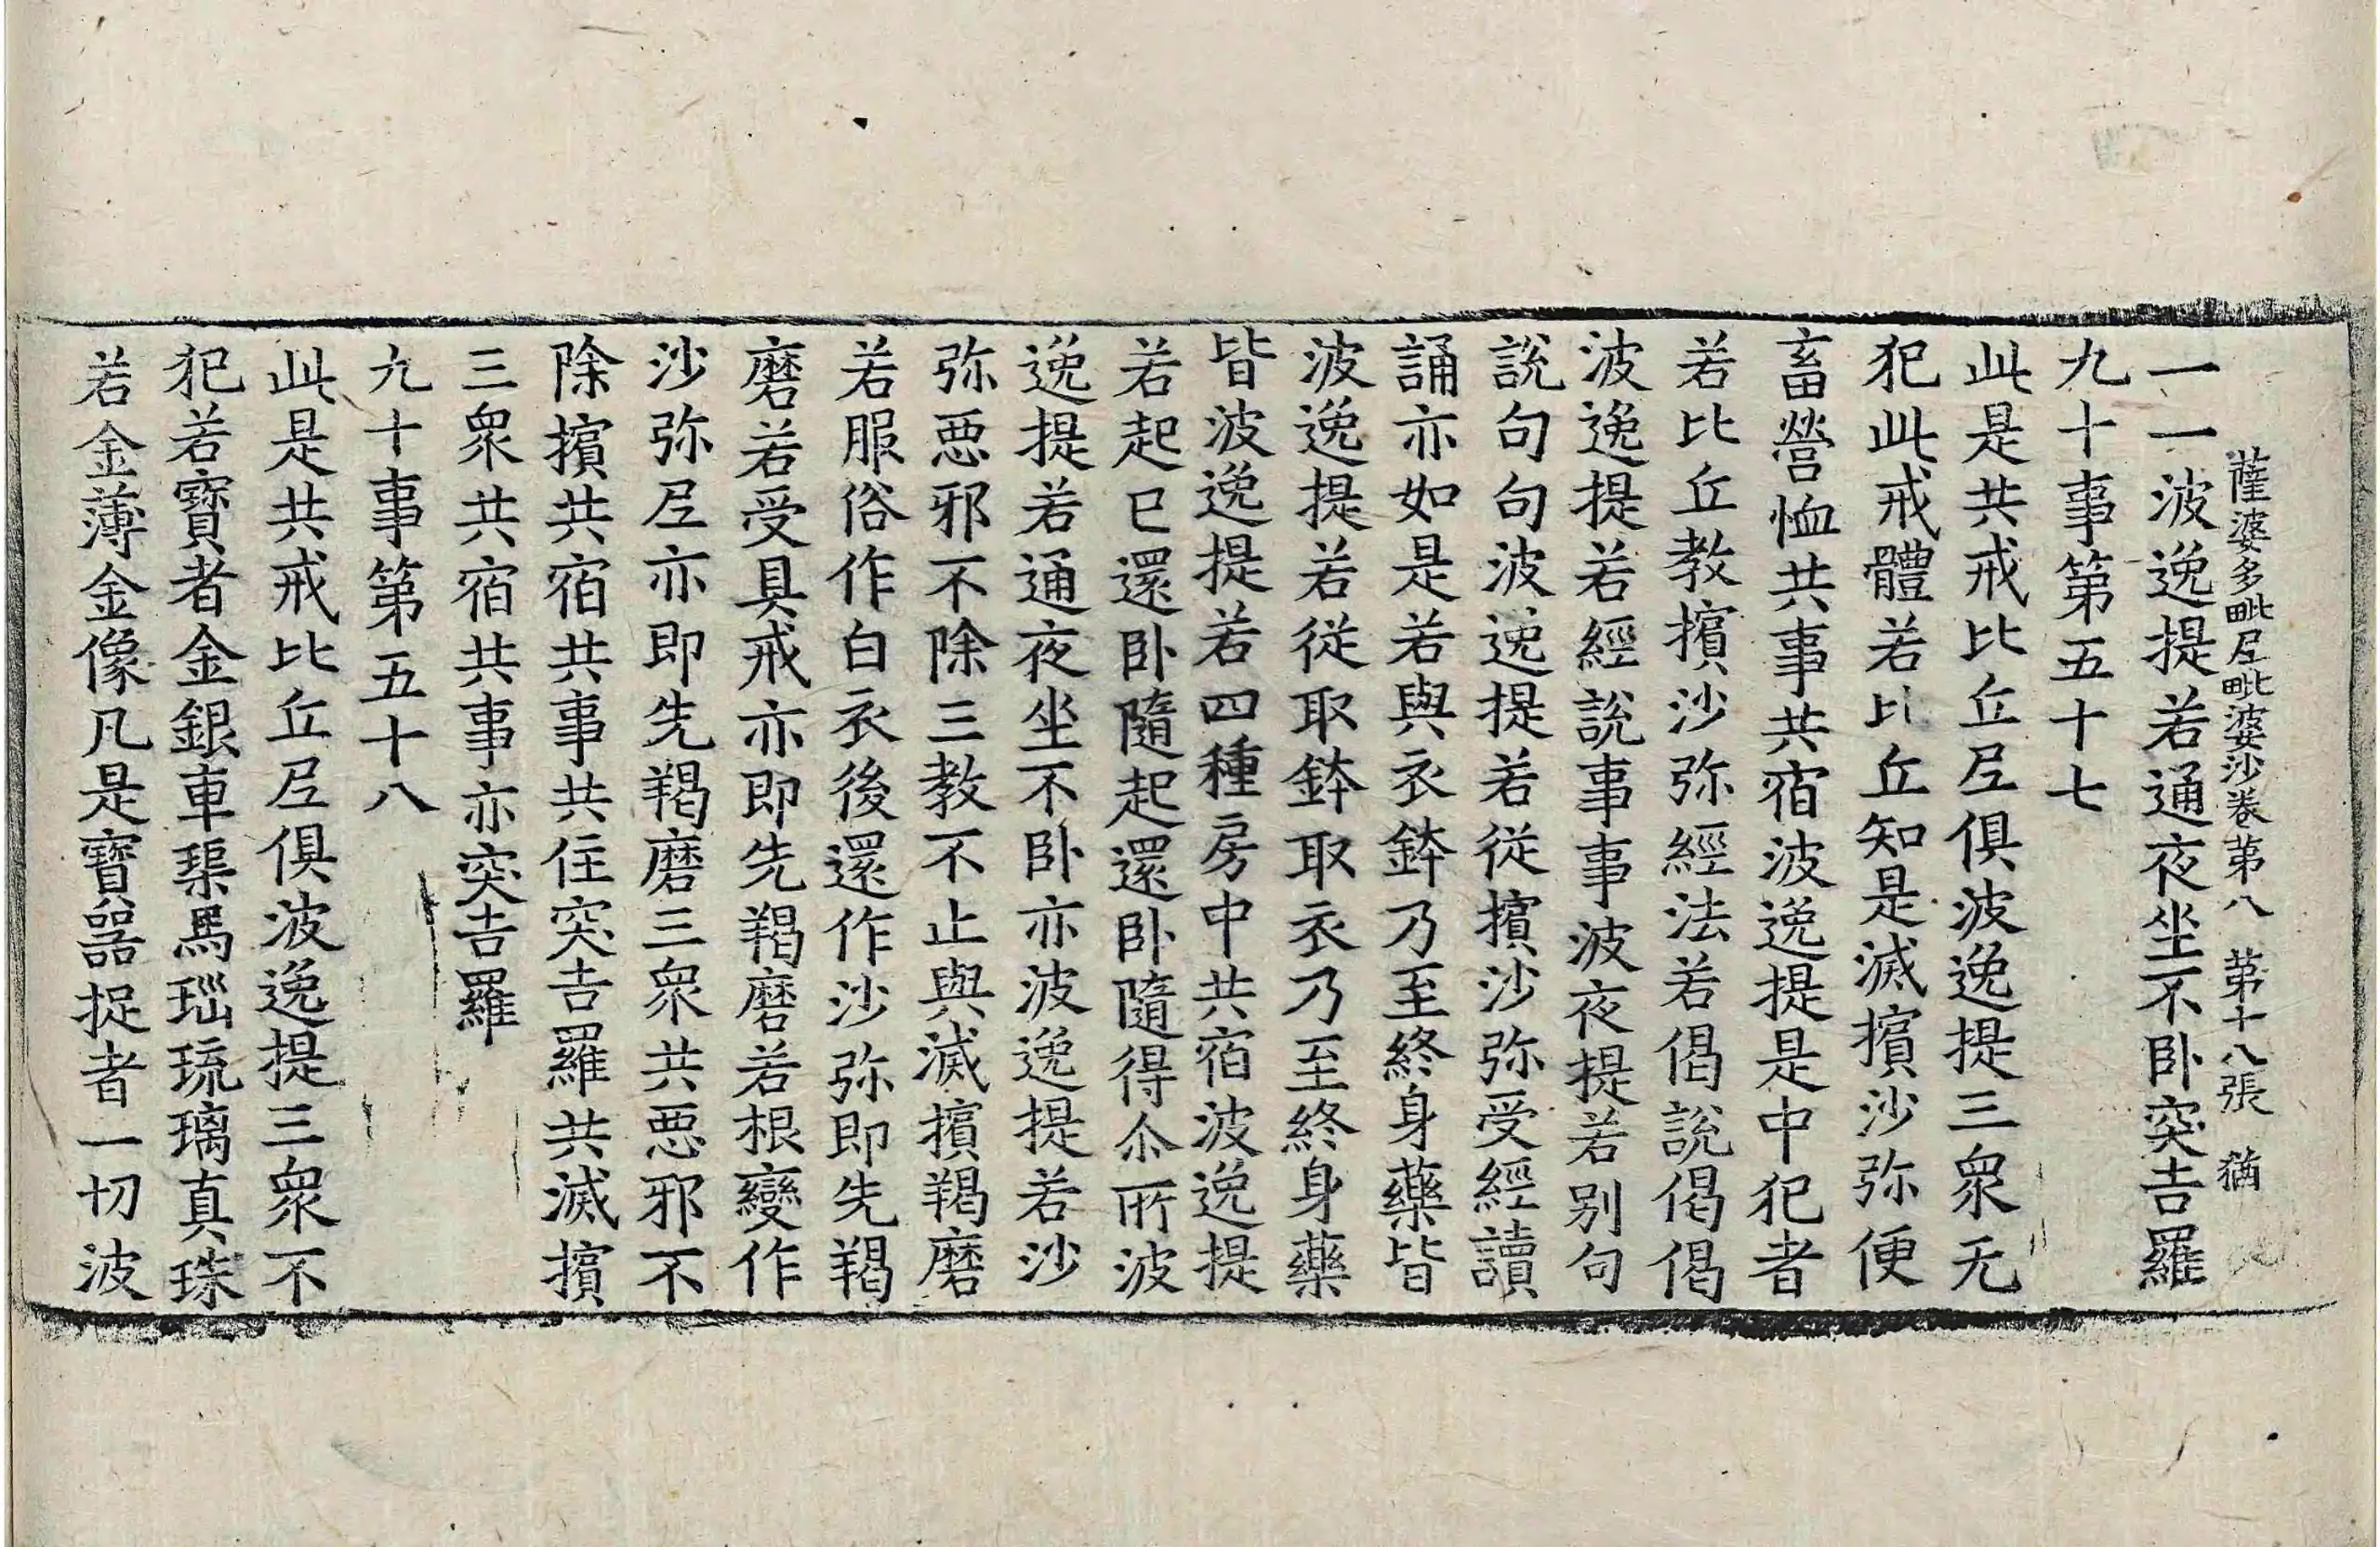 薩婆多毗尼毗婆沙卷第八　第十八張　猶
一一波逸提若通夜坐不卧突吉羅
九十事第五十七
此是共戒比丘尼俱波逸提三衆无
犯此戒體若比丘知是滅擯沙弥便
畜營恤共事共宿波逸提是中犯者
若比丘教擯沙弥經法若偈說偈偈
波逸提若經說事事波夜提若别句
說句句波逸提若從擯沙弥受經讀
誦亦如是若與衣鉢乃至終身藥皆
波逸提若從取鉢取衣乃至終身藥
皆波逸提若四種房中共宿波逸提
若起已還卧隨起還卧隨得尒所波
逸提若通夜坐不卧亦波逸提若沙
弥惡邪不除三教不止與滅擯羯磨
若服俗作白衣後還作沙弥即先羯
磨若受具戒亦即先羯磨若根變作
沙弥尼亦即先羯磨三衆共惡邪不
除擯共宿共事共住突吉羅共滅擯
三衆共宿共事亦突吉羅
九十事第五十八
此是共戒比丘尼俱波逸提三衆不
犯若寶者金銀車璖馬瑙琉璃真珠
若金薄金像凡是寶器捉者一切波